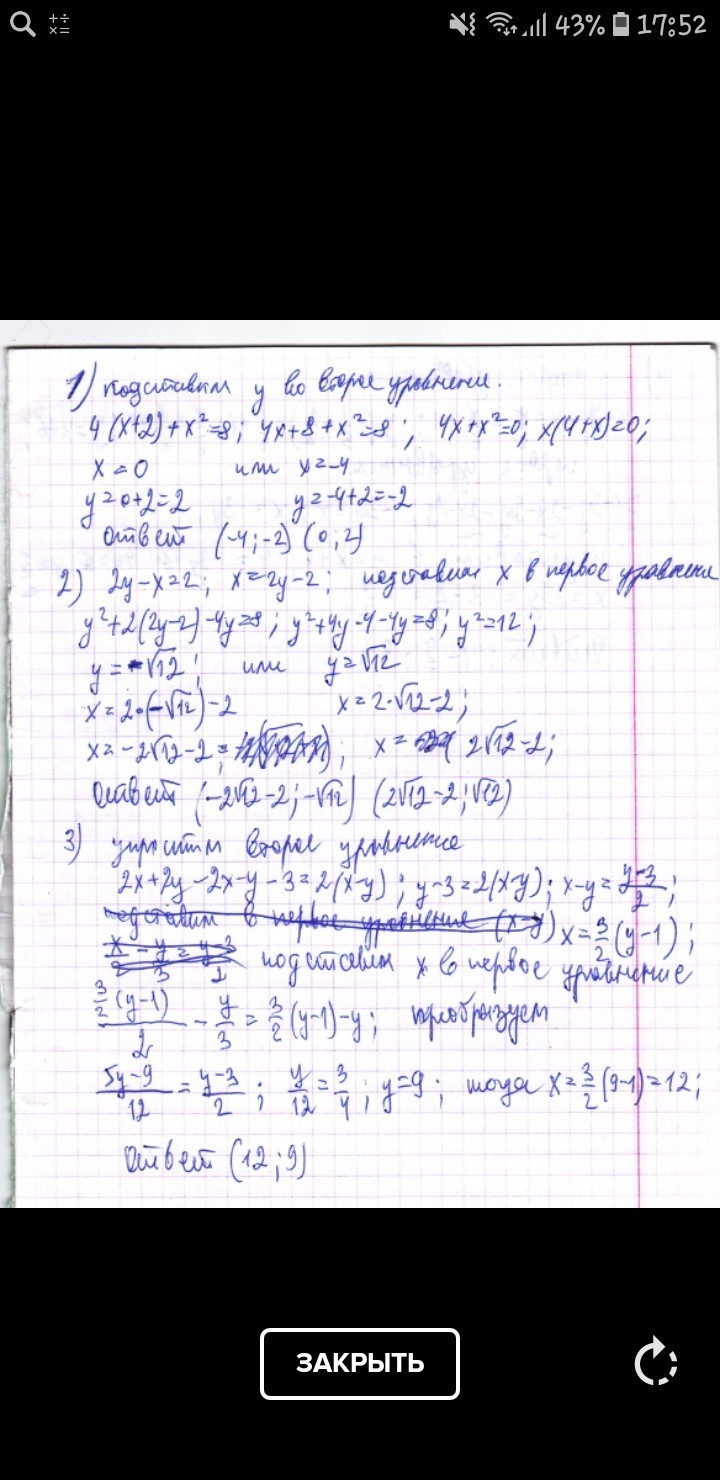 43% 17:52
1) подставим y во второе уравнение.
4(x+2)+x²=8; 4x+8+x²=8; 4x+x²=0; x(4+x)=0;
x=0 или x=-4
y=0+2=2 y=-4+2=-2
Ответ (-4;-2) (0;2)
2) 2y-x=2; x=2y-2; подставим x в первое уравнение
y²+2(2y-2)-4y=8; y²+4y-4-4y=8; y²=12;
y=-√12; или y=√12
x=2·(-√12)-2 x=2·√12-2;
x=-2√12-2; x=2√12-2;
Ответ (-2√12-2;-√12) (2√12-2;√12)
3) упростим второе уравнение
2x+2y-2x-y-3=2(x-y); y-3=2(x-y); x-y=(y-3)/2;
подставим в первое уравнение (x-y) x=3/2(y-1);
подставим x в первое уравнение
(3/2(y-1))/2-y/3=3/2(y-1)-y; преобразуем
(5y-9)/12=(y-3)/2; y/12=3/4; y=9; тогда x=3/2(9-1)=12;
Ответ (12;9)
ЗАКРЫТЬ